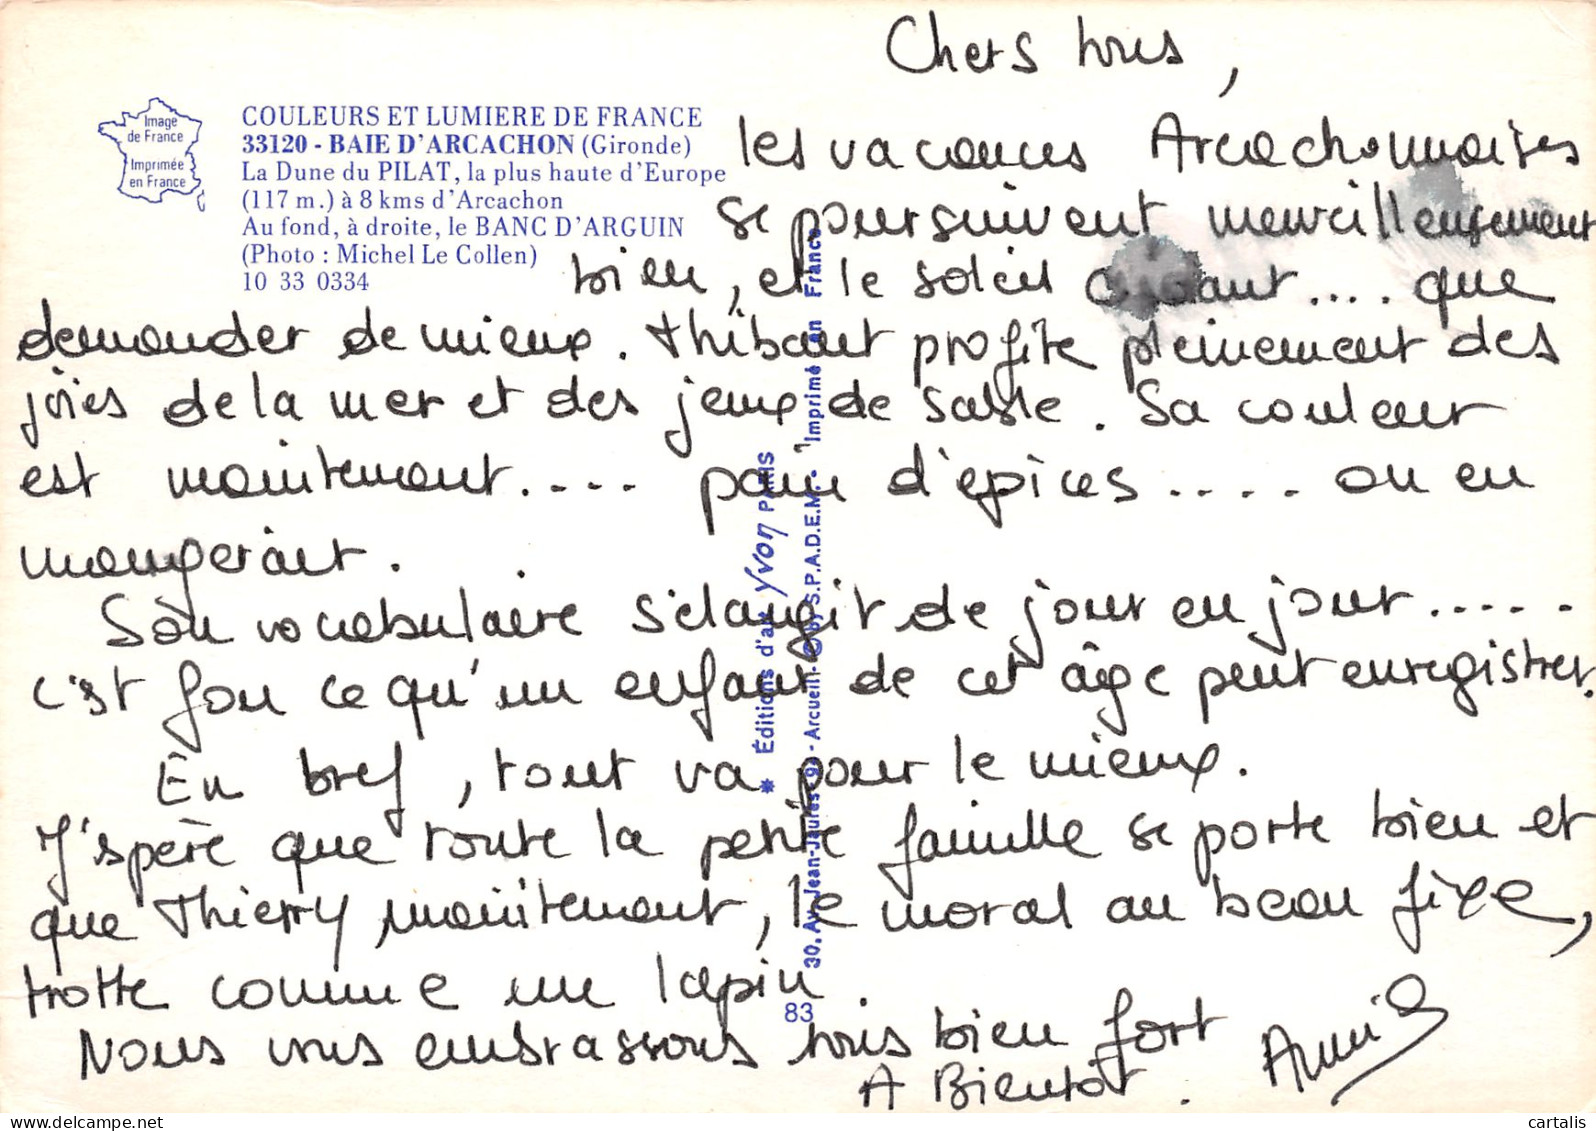 Image
de France
Imprimée
en France
COULEURS ET LUMIERE DE FRANCE
33120 - BAIE D'ARCACHON (Gironde)
La Dune du PILAT, la plus haute d'Europe
(117 m.) à 8 kms d'Arcachon
Au fond, à droite, le BANC D'ARGUIN
(Photo : Michel Le Collen)
10 33 0334
Chers tous,
les vacances Arcachonnaises
se poursuivent merveilleusement
bien, et le soleil aidant.... que
demander de mieux. Thibaut profite pleinement des
joies de la mer et des jeux de sable. Sa couleur
est maintenant.... pain d'épices.... on en
mangerait.
Son vocabulaire s'élargit de jour en jour.....
c'est fou ce qu'un enfant de cet âge peut enregistrer.
En bref, tout va pour le mieux.
J'spère que toute la petite famille se porte bien et
que Thierry maintenant, le moral au beau fixe,
trotte comme un lapin.
Nous vous embrassons tous bien fort
A Bientôt.
Annie
* Éditions d'art Yvon PARIS
30, Av. Jean-Jaurès 94 - Arcueil - © by S.P.A.D.E.M. - Imprimé en France
83
cartalis
www.delcampe.net